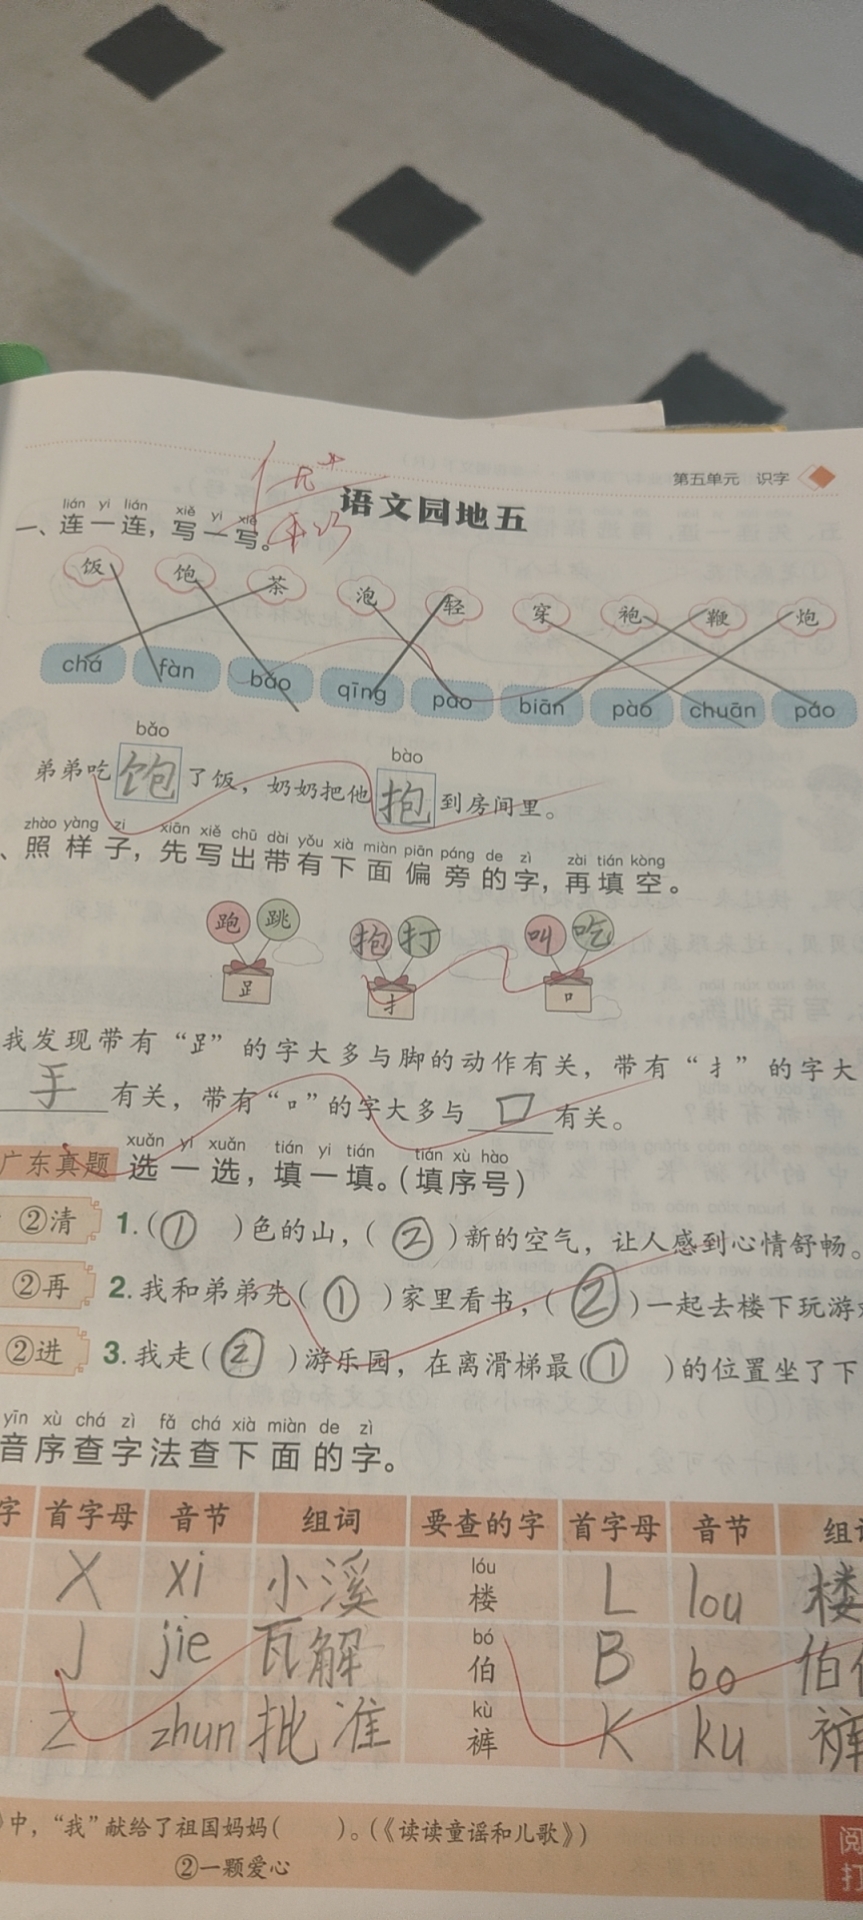 第五单元 识字
优+
语文园地五
lián yi lián xiě yi xiě
一、连一连，写一写。
饭 饱 茶 泡 轻 穿 袍 鞭 炮
chá fàn bǎo qīng pào biān pào chuān páo
bǎo bào
弟弟吃饱了饭，奶奶把他抱到房间里。
zhào yàng zi xiān xiě chū dài yǒu xià miàn piān páng de zì zài tián kòng
、照样子，先写出带有下面偏旁的字，再填空。
跑 跳 抱 打 叫 吃
𧾷 扌 口
我发现带有“𧾷”的字大多与脚的动作有关，带有“扌”的字大
手有关，带有“口”的字大多与口有关。
xuǎn yi xuǎn tián yi tián tián xù hào
广东真题 选一选，填一填。（填序号）
②清 1.（① ）色的山，（ ② ）新的空气，让人感到心情舒畅。
②再 2.我和弟弟先（ ① ）家里看书，（ ② ）一起去楼下玩游
②进 3.我走（ ② ）游乐园，在离滑梯最（① ）的位置坐了下
yīn xù chá zì fǎ chá xià miàn de zì
音序查字法查下面的字。
字 首字母 音节 组词 要查的字 首字母 音节 组
lóu
X xi 小溪 楼 L lou 楼
bó
J jie 瓦解 伯 B bo 伯
kù
Z zhun 批准 裤 K ku 裤
》中，“我”献给了祖国妈妈（ ）。（《读读童谣和儿歌》）
②一颗爱心
阅
打